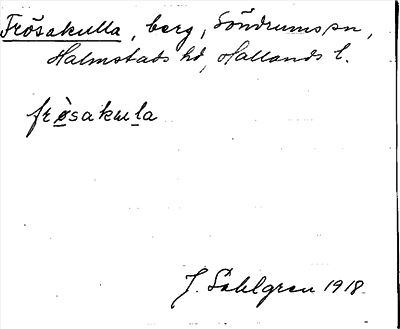 Frösakulla, berg, Söndrums sn,
Halmstads hd, Hallands l.
frösakula
J. Sahlgren 1918